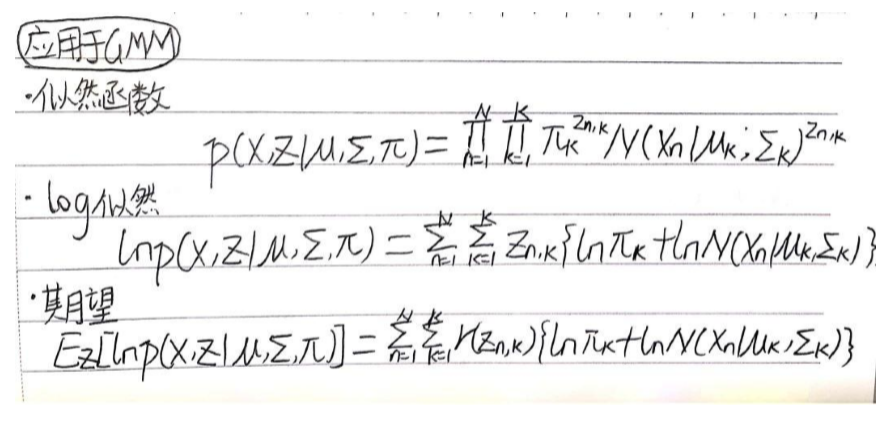 应用于GMM
·似然函数
p(X,Z|μ,Σ,π)=∏_{n=1}^{N}∏_{k=1}^{K}π_k^{z_{n,k}}N(x_n|μ_k,Σ_k)^{z_{n,k}}
·log似然
lnp(X,Z|μ,Σ,π)=∑_{n=1}^{N}∑_{k=1}^{K}z_{n,k}{lnπ_k+lnN(x_n|μ_k,Σ_k)}
·期望
E_Z[lnp(X,Z|μ,Σ,π)]=∑_{n=1}^{N}∑_{k=1}^{K}γ(z_{n,k}){lnπ_k+lnN(x_n|μ_k,Σ_k)}